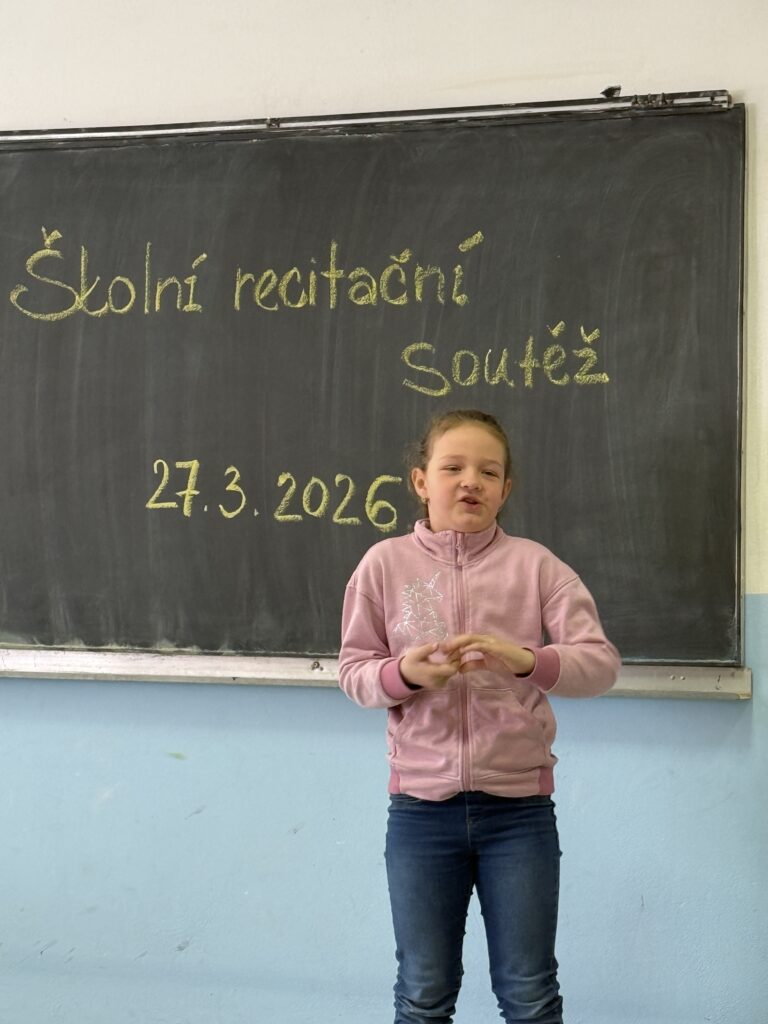 Školní recitační
soutěž
27.3.2026